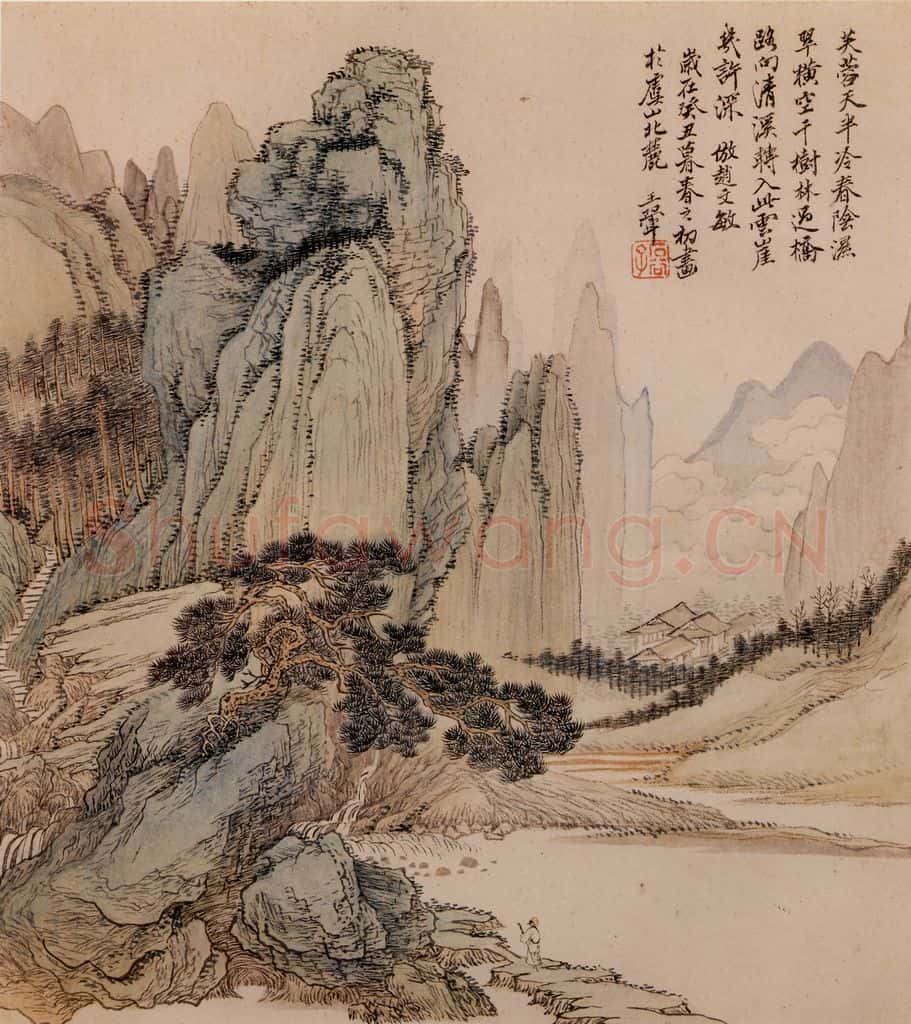 芙蓉天半冷春陰濕
翠橫空千樹林過橋
路向清溪轉入此雲崖
幾許深 倣趙文敏
歲在癸丑暮春之初畫
於虞山北麓 王翬
Shufawang.CN